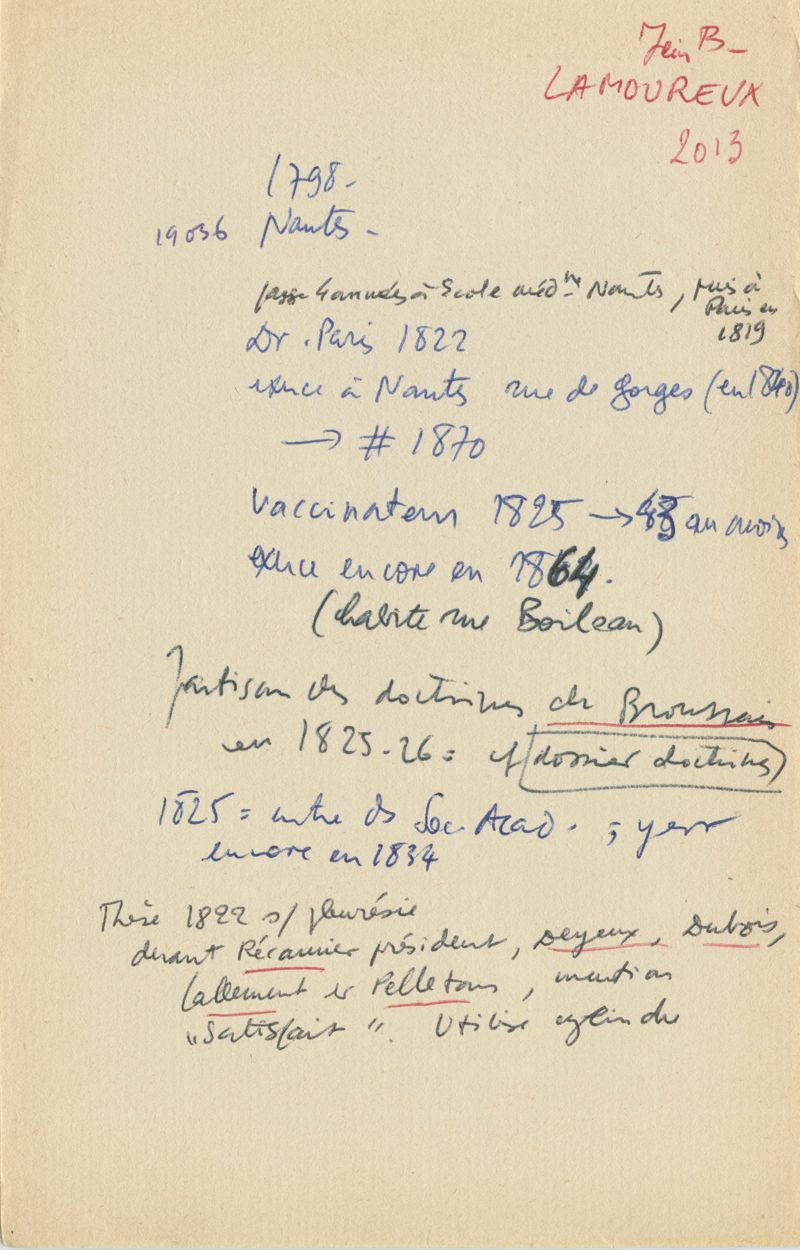 Jean B-
LAMOUREUX
2013
1798-
19036 Nantes -
passe 4 années à Ecole médne Nantes, puis à
Paris en
1819
Dr. Paris 1822
exerce à Nantes rue de Gorges (en 1840)
→ # 1870
Vaccinateur 1825 → 45 au moins
exerce encore en 1864.
(habite rue Boileau)
Partisan des doctrines de Broussais
en 1825-26 = cf dossier doctrines
1825 = entre ds Soc. Acad. ; y est
encore en 1834
Thèse 1822 s/ pleurésie
devant Récamier président, Deyeux, Dubois,
Lallement et Pelletan, mention
"Satisfait". Utilise cylindre